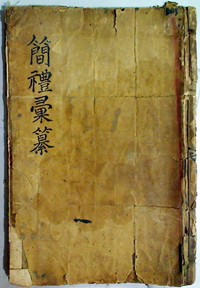 簡禮彙纂